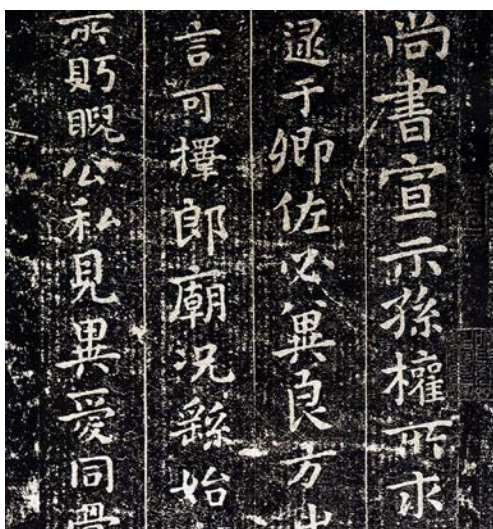 尚書宣示孫權所求
逮于卿佐必冀良方出
言可擇郎廟況繇始
所眄睨公私見異愛同骨